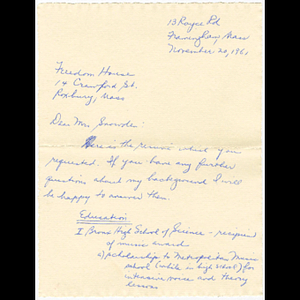 13 Royce Rd
Framingham, Mass
November 20, 1961
Freedom House
14 Crawford St.
Roxbury, Mass
Dear Mrs. Snowden:
Here is the resumé which you
requested. If you have any further
questions about my background I will
be happy to answer them.
Education
I Bronx High School of Science - recipient
of music award
a) scholarship to Metropolitan Music
school (while in high school) for
intensive and theory
lessons